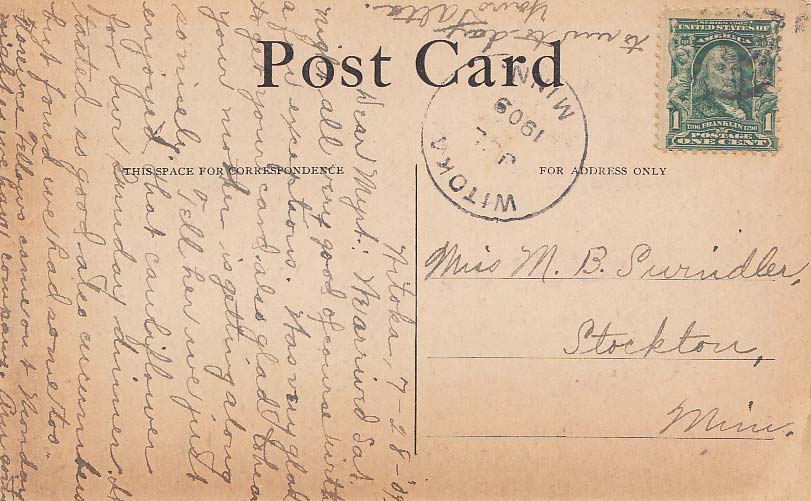 Post Card
THIS SPACE FOR CORRESPONDENCE
FOR ADDRESS ONLY
SERIES 1902
UNITED STATES OF
AMERICA
1 1
1706 FRANKLIN 1790
POSTAGE
ONE CENT
WITOKA
MINN.
JUL
1909
Miss M. B. Swindler,
Stockton,
Minn.
Witoka, 7-28-'09
Dear Myrt: We arrived Sat.
night all very good of course with
a few exceptions. Was very glad
to get your card also glad to hear
your mother is getting along
so nicely. Tell her we just
enjoyed that cauliflower
for our Sunday dinner. It
tasted so good also cucumbers
but found we had some too.
came out Monday
we have company
to-day
Yours